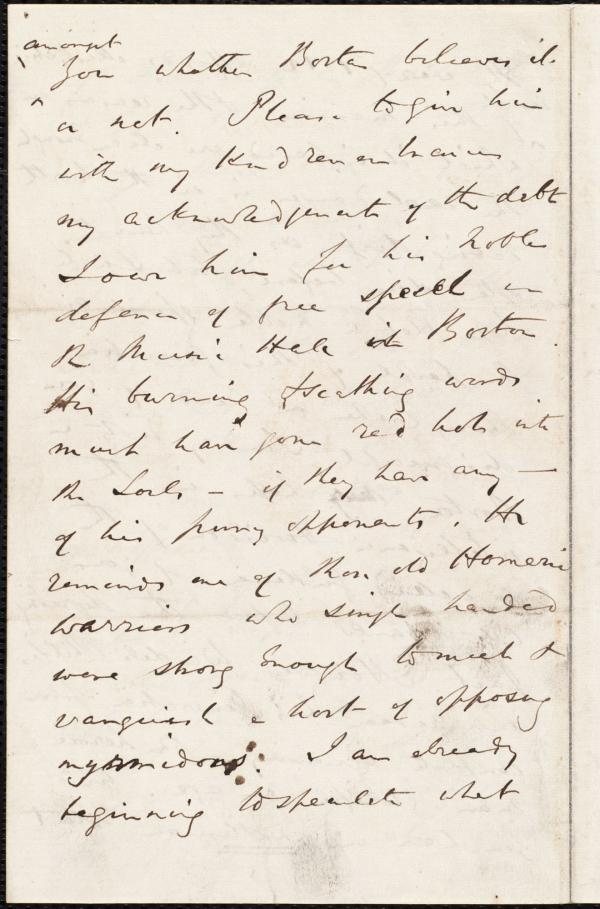 amongst
you whether Boston believes it
or not. Please to give him
with my kind remembrances
my acknowledgments of the debt
I owe him for his noble
defence of free speech in
the Music Hall at Boston.
His burning & scathing words
must have gone red hot into
the souls – if they have any –
of his puny opponents. He
reminds me of those old Homeric
warriors who single handed
were strong enough to meet &
vanquish a host of opposing
myrmidons. I am already
beginning to speculate what